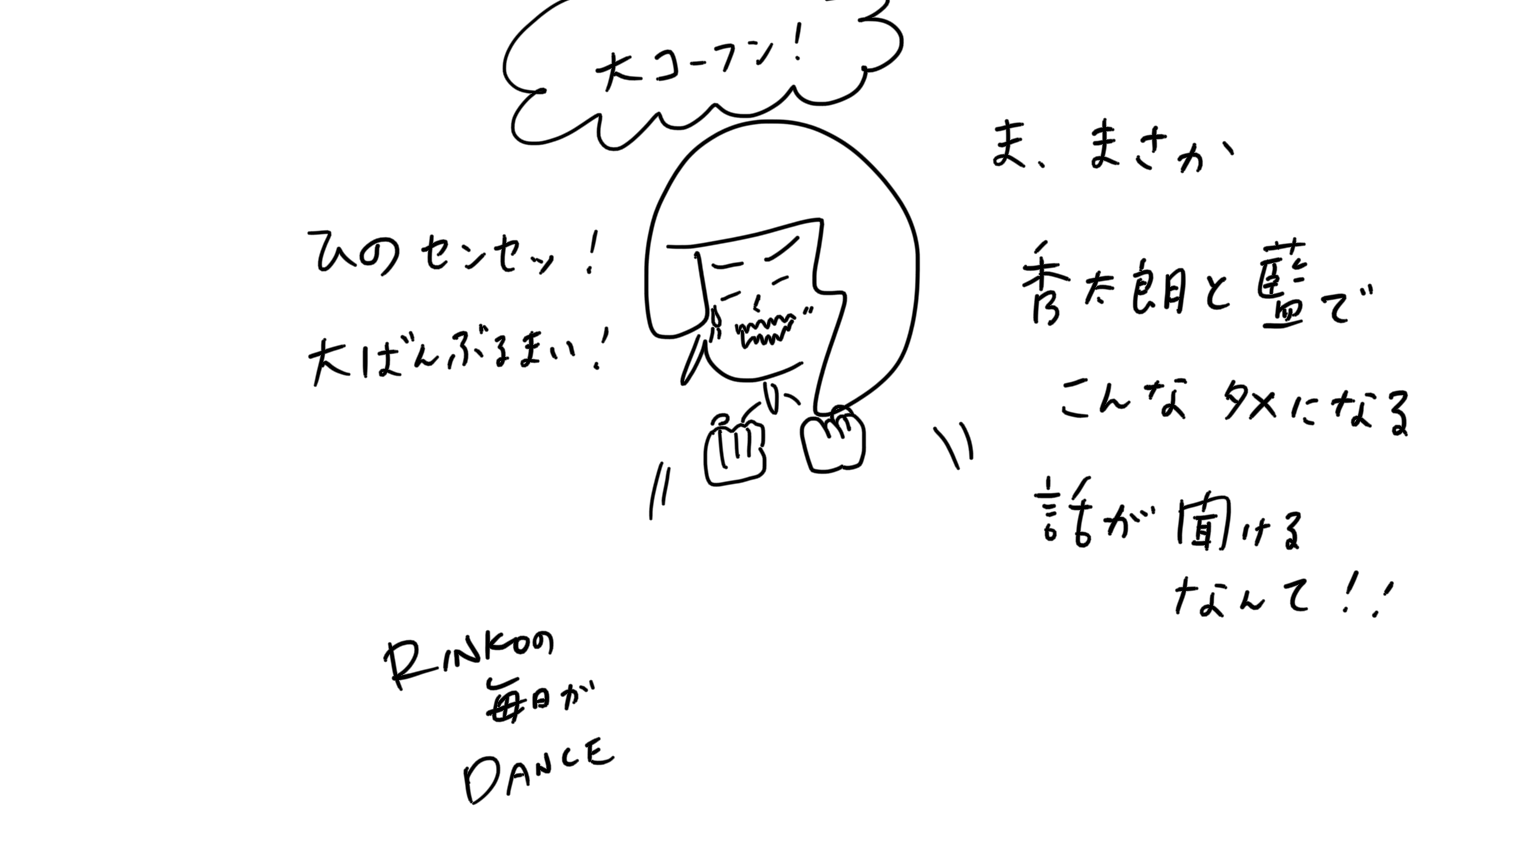 大コーフン!
ま、まさか
秀太朗と藍で
こんなタメになる
話が聞ける
なんて!!
ひのセンセッ!
大ばんぶるまい!
RINKOの
毎日が
DANCE